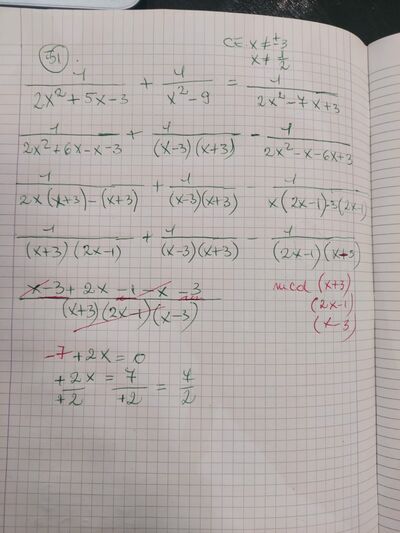 51.
CE x ≠ ± 3
x ≠ 1/2
1/(2x² + 5x - 3) + 1/(x² - 9) = 1/(2x² - 7x + 3)
1/(2x² + 6x - x - 3) + 1/((x-3)(x+3)) - 1/(2x² - x - 6x + 3)
1/(2x(x+3) - (x+3)) + 1/((x-3)(x+3)) - 1/(x(2x-1) - 3(2x-1))
1/((x+3)(2x-1)) + 1/((x-3)(x+3)) - 1/((2x-1)(x-3))
(x - 3 + 2x - 1 - x - 3)/((x+3)(2x-1)(x-3))
mcd (x+3)
(2x-1)
(x-3)
-7 + 2x = 0
+2x/+2 = 7/+2 = 7/2